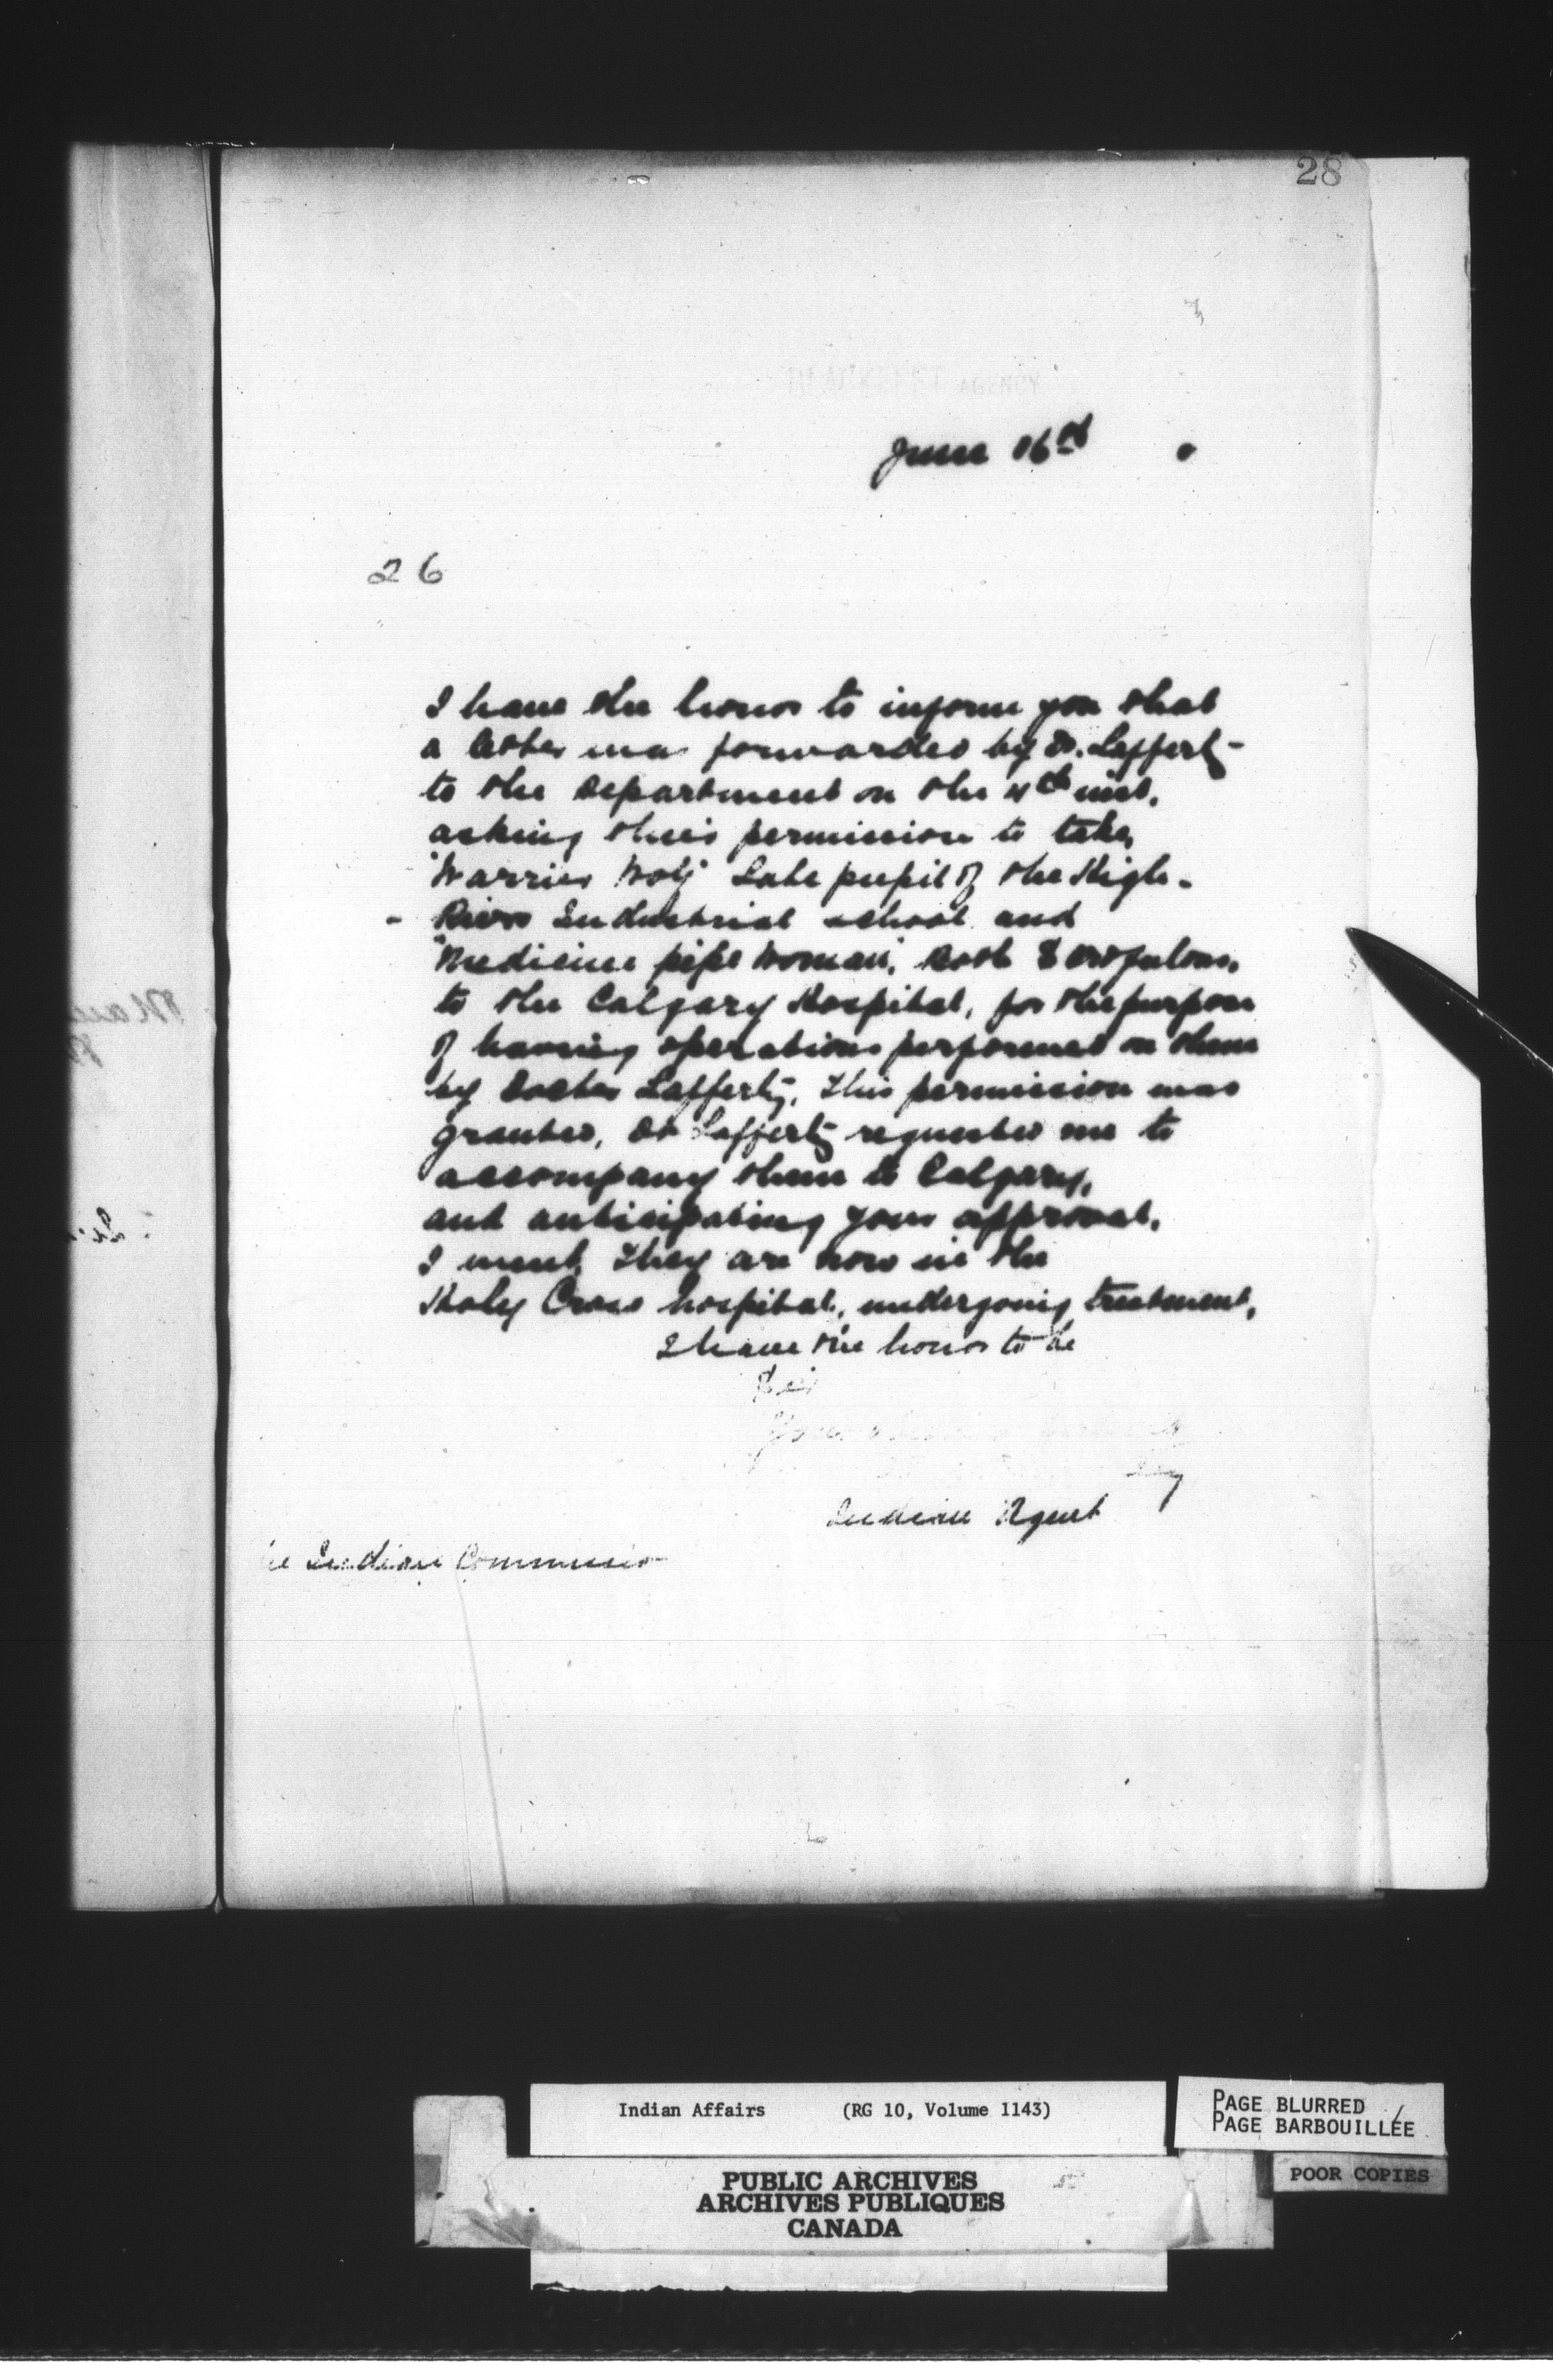 28
AGENCY
June 16th
26
I have the honor to inform you that
a letter was forwarded by Dr. Lafferty
to the Department on the 4th inst,
asking their permission to take,
"Warrior Wolf" Late pupil of the High-
- River Industrial school and
"Medicine pipe Woman", both Scrofulous,
to the Calgary Hospital, for the purpose
of having operations performed on them
by Doctor Lafferty, this permission was
granted, Dr Lafferty requested me to
accompany them to Calgary,
and anticipating your approval,
I went, They are now in the
Holy Cross hospital, undergoing treatment,
I have the honor to be
Sir
Your
Indian Agent
Indian Commissio
Indian Affairs (RG 10, Volume 1143)
PAGE BLURRED
PAGE BARBOUILLÉE
POOR COPIES
PUBLIC ARCHIVES
ARCHIVES PUBLIQUES
CANADA